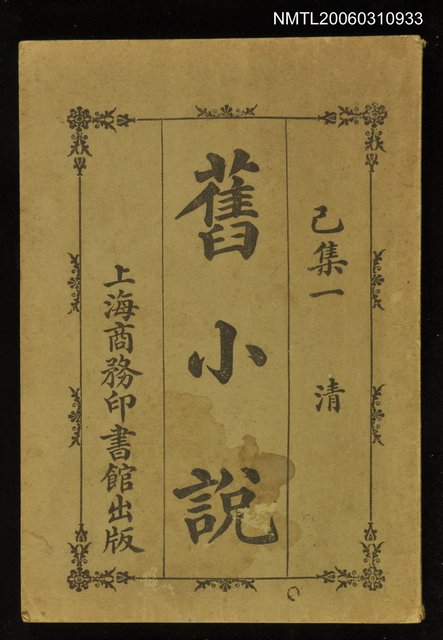 NMTL20060310933
己集一 清
舊小說
上海商務印書館出版